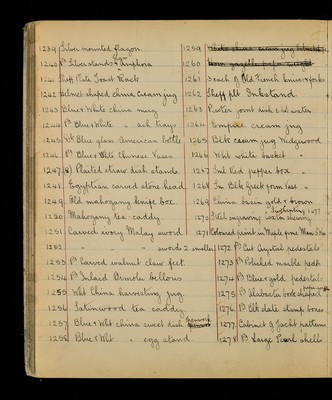 1239 Silver mounted flagon
1240 Pr Silver stands & Amphora
1241 Sheff Plate Toast Rack
1242 Helmet shaped china cream jug
1243 Blue & White china mug
1244 Pr Blue & White " ash trays
1245 Blue glass American bottle
1246 Pr Blue & White Chinese Vases
1247 (8) Plaited straw dish stands
1248 Egyptian carved stone head
1249 Old mahogany knife box
1250 Mahogany tea-caddy
1251 Carved ivory Malay sword
1252 " " swords 2 smaller
1253 Pr Carved walnut claw feet
1254 Pr Inlaid Ormolu bellows
1255 Wht China harvesting jug
1256 Satinwood tea caddy
1257 Blue & Wht china sweet dish
1258 Blue & Wht " egg stand
1259
1260
1261 3 each of Old French knives & forks
1262 Sheff plt Inkstand
1263 Pewter joint dish & hot water
1264 Empire cream jug
1265 Blk cream jug Wedgwood
1266 Wht white basket "
1267 Ind Red pepper box "
1268 Sm Blk Greek form vase "
1269 China basin gold & brown
1270 Steel engraving
1271 Coloured print in Maple frame
1272 Pr Cut Crystal pedestals
1273 Pr Polished marble pedts
1274 Pr Blue & gold pedestals
1275 Pr Alabaster box shaped
1276 Pr Blk slate stamp boxes
1277 Cabinet of Yacht patterns
1278 Pr Large Pearl shells